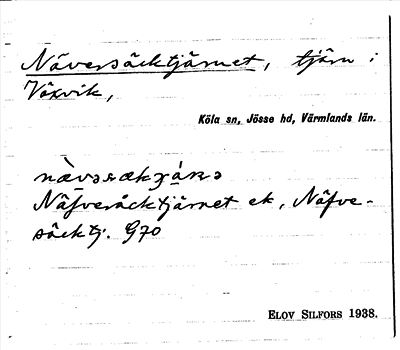 Näversäcktjärnet, tjärn i
Växvik,
Köla sn, Jösse hd, Värmlands län.
Näfversäcktjärnet ek, Näfve-
säcktj. G70
ELOV SILFORS 1938.